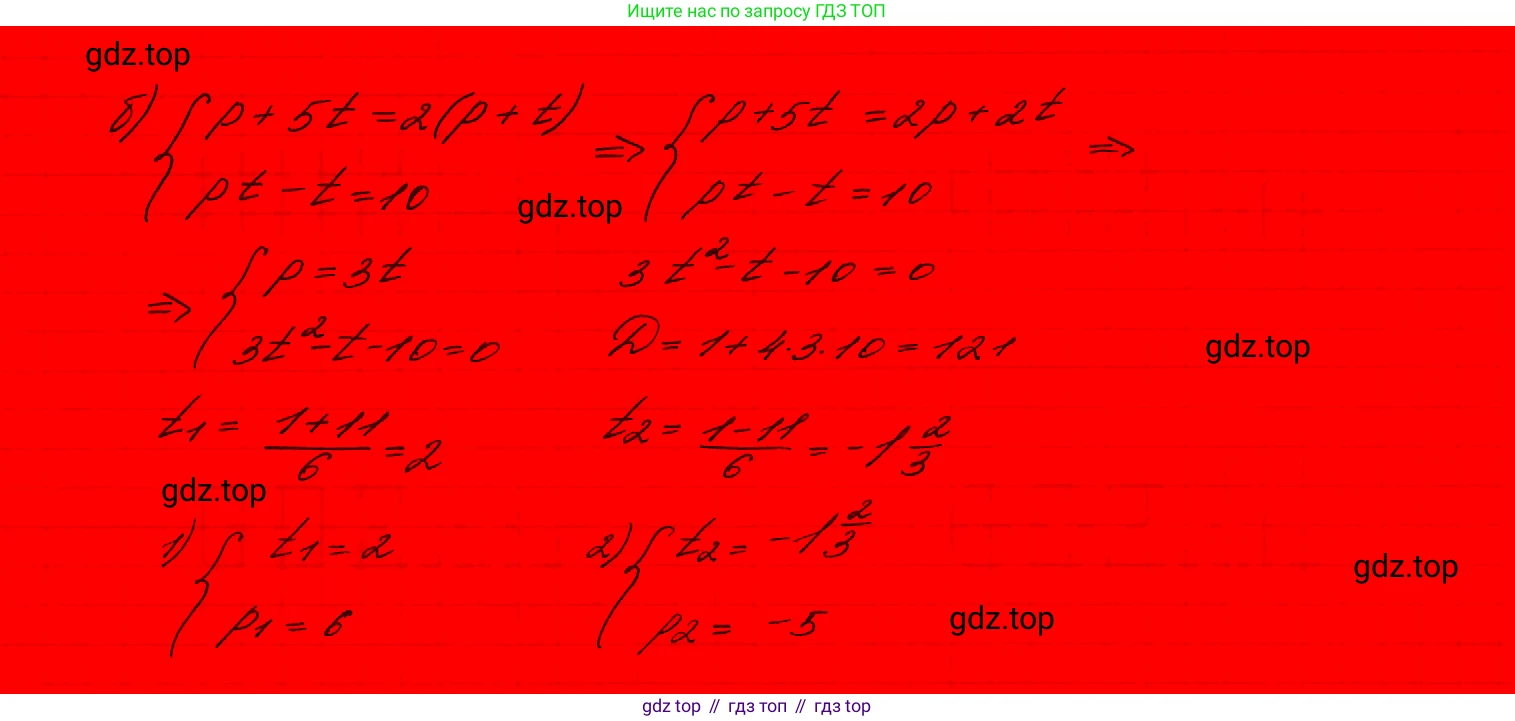 Ищите нас по запросу ГДЗ ТОП
gdz.top
б) { p + 5t = 2(p + t) ⇒ { p + 5t = 2p + 2t ⇒
pt - t = 10 gdz.top pt - t = 10
⇒ { p = 3t 3t² - t - 10 = 0
3t² - t - 10 = 0 D = 1 + 4·3·10 = 121 gdz.top
t₁ = (1+11)/6 = 2 t₂ = (1-11)/6 = -1 2/3
gdz.top
1) { t₁ = 2 2) { t₂ = -1 2/3
gdz.top
p₁ = 6 p₂ = -5 gdz.top
gdz top // гдз топ // гдз top